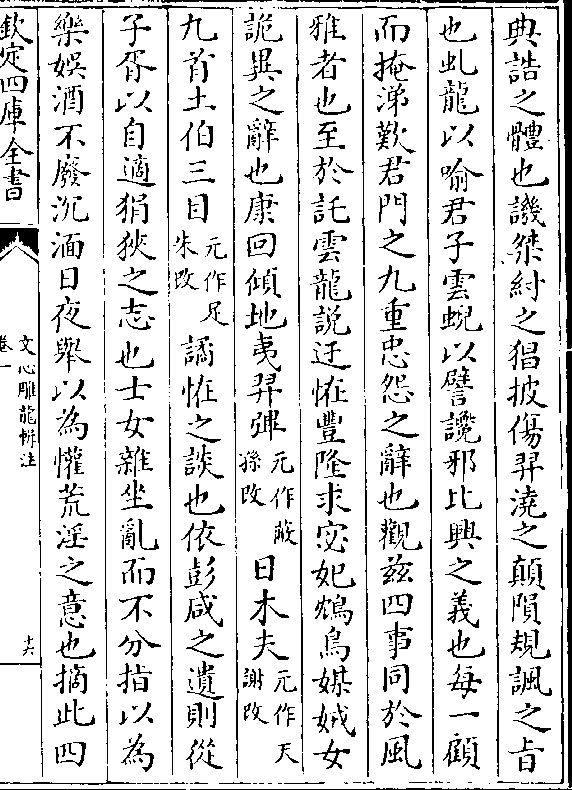 典誥之體也譏桀紂之猖披傷羿澆之顛隕規諷之旨
也虬龍以喻君子雲蜺以譬讒邪比興之義也每一顧
而掩涕歎君門之九重忠怨之辭也觀兹四事同於風
雅者也至於託雲龍說迂恠豐隆求宓妃鴆鳥媒娀女
詭異之辭也康回傾地夷羿彃元作蔽孫改日木夫元作天謝改
九首土伯三目元作足朱改譎恠之談也依彭咸之遺則從
子胥以自適狷狹之志也士女雜坐亂而不分指以為
樂娛酒不廢沉湎日夜舉以為懽荒淫之意也摘此四
欽定四庫全書
文心雕龍輯注
卷一
十六